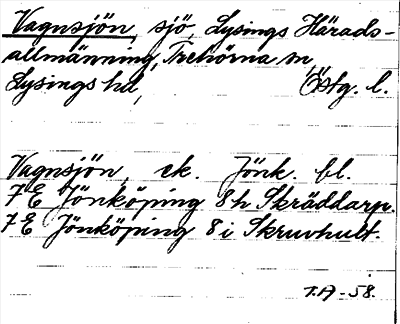 Vagnsjön, sjö, Lysings Härads-
allmänning, Trehörna sn,
Lysings hd, Östg. l.
Vagnsjön, ek. Jönk. bl.
7 E Jönköping 8 h Skräddarp.
7 E Jönköping 8 i Skruvhult.
T.A-58.